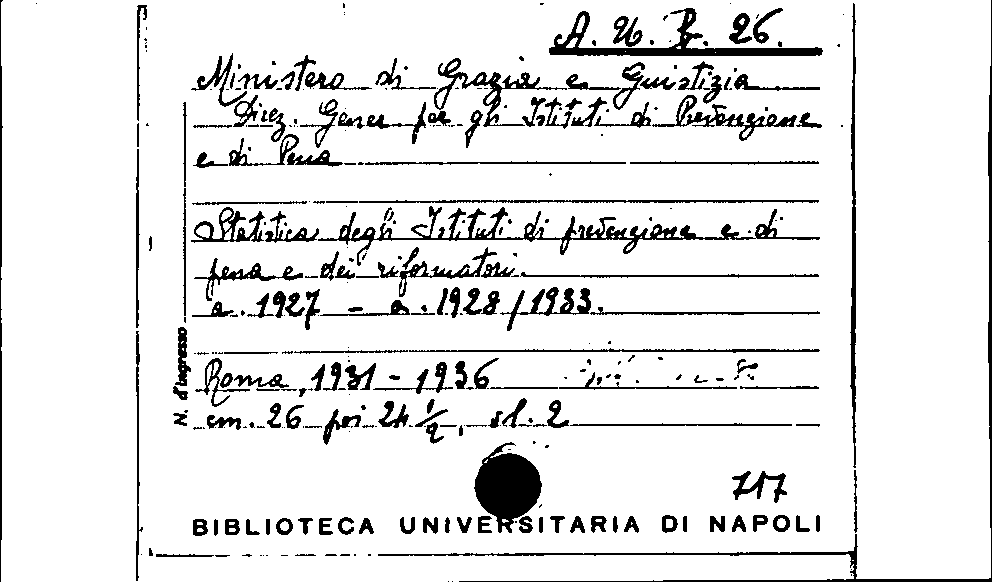 A. U. B. 26.
Ministero di Grazia e Giustizia
Direz. Gener. per gli Istituti di Prevenzione
e di Pena
Statistica degli Istituti di prevenzione e di
pena e dei riformatori.
a. 1927 - a. 1928/1933.
Roma, 1931 - 1936
cm. 26 poi 24 1/2, sl. 2
N. d'ingresso
717
BIBLIOTECA UNIVERSITARIA DI NAPOLI